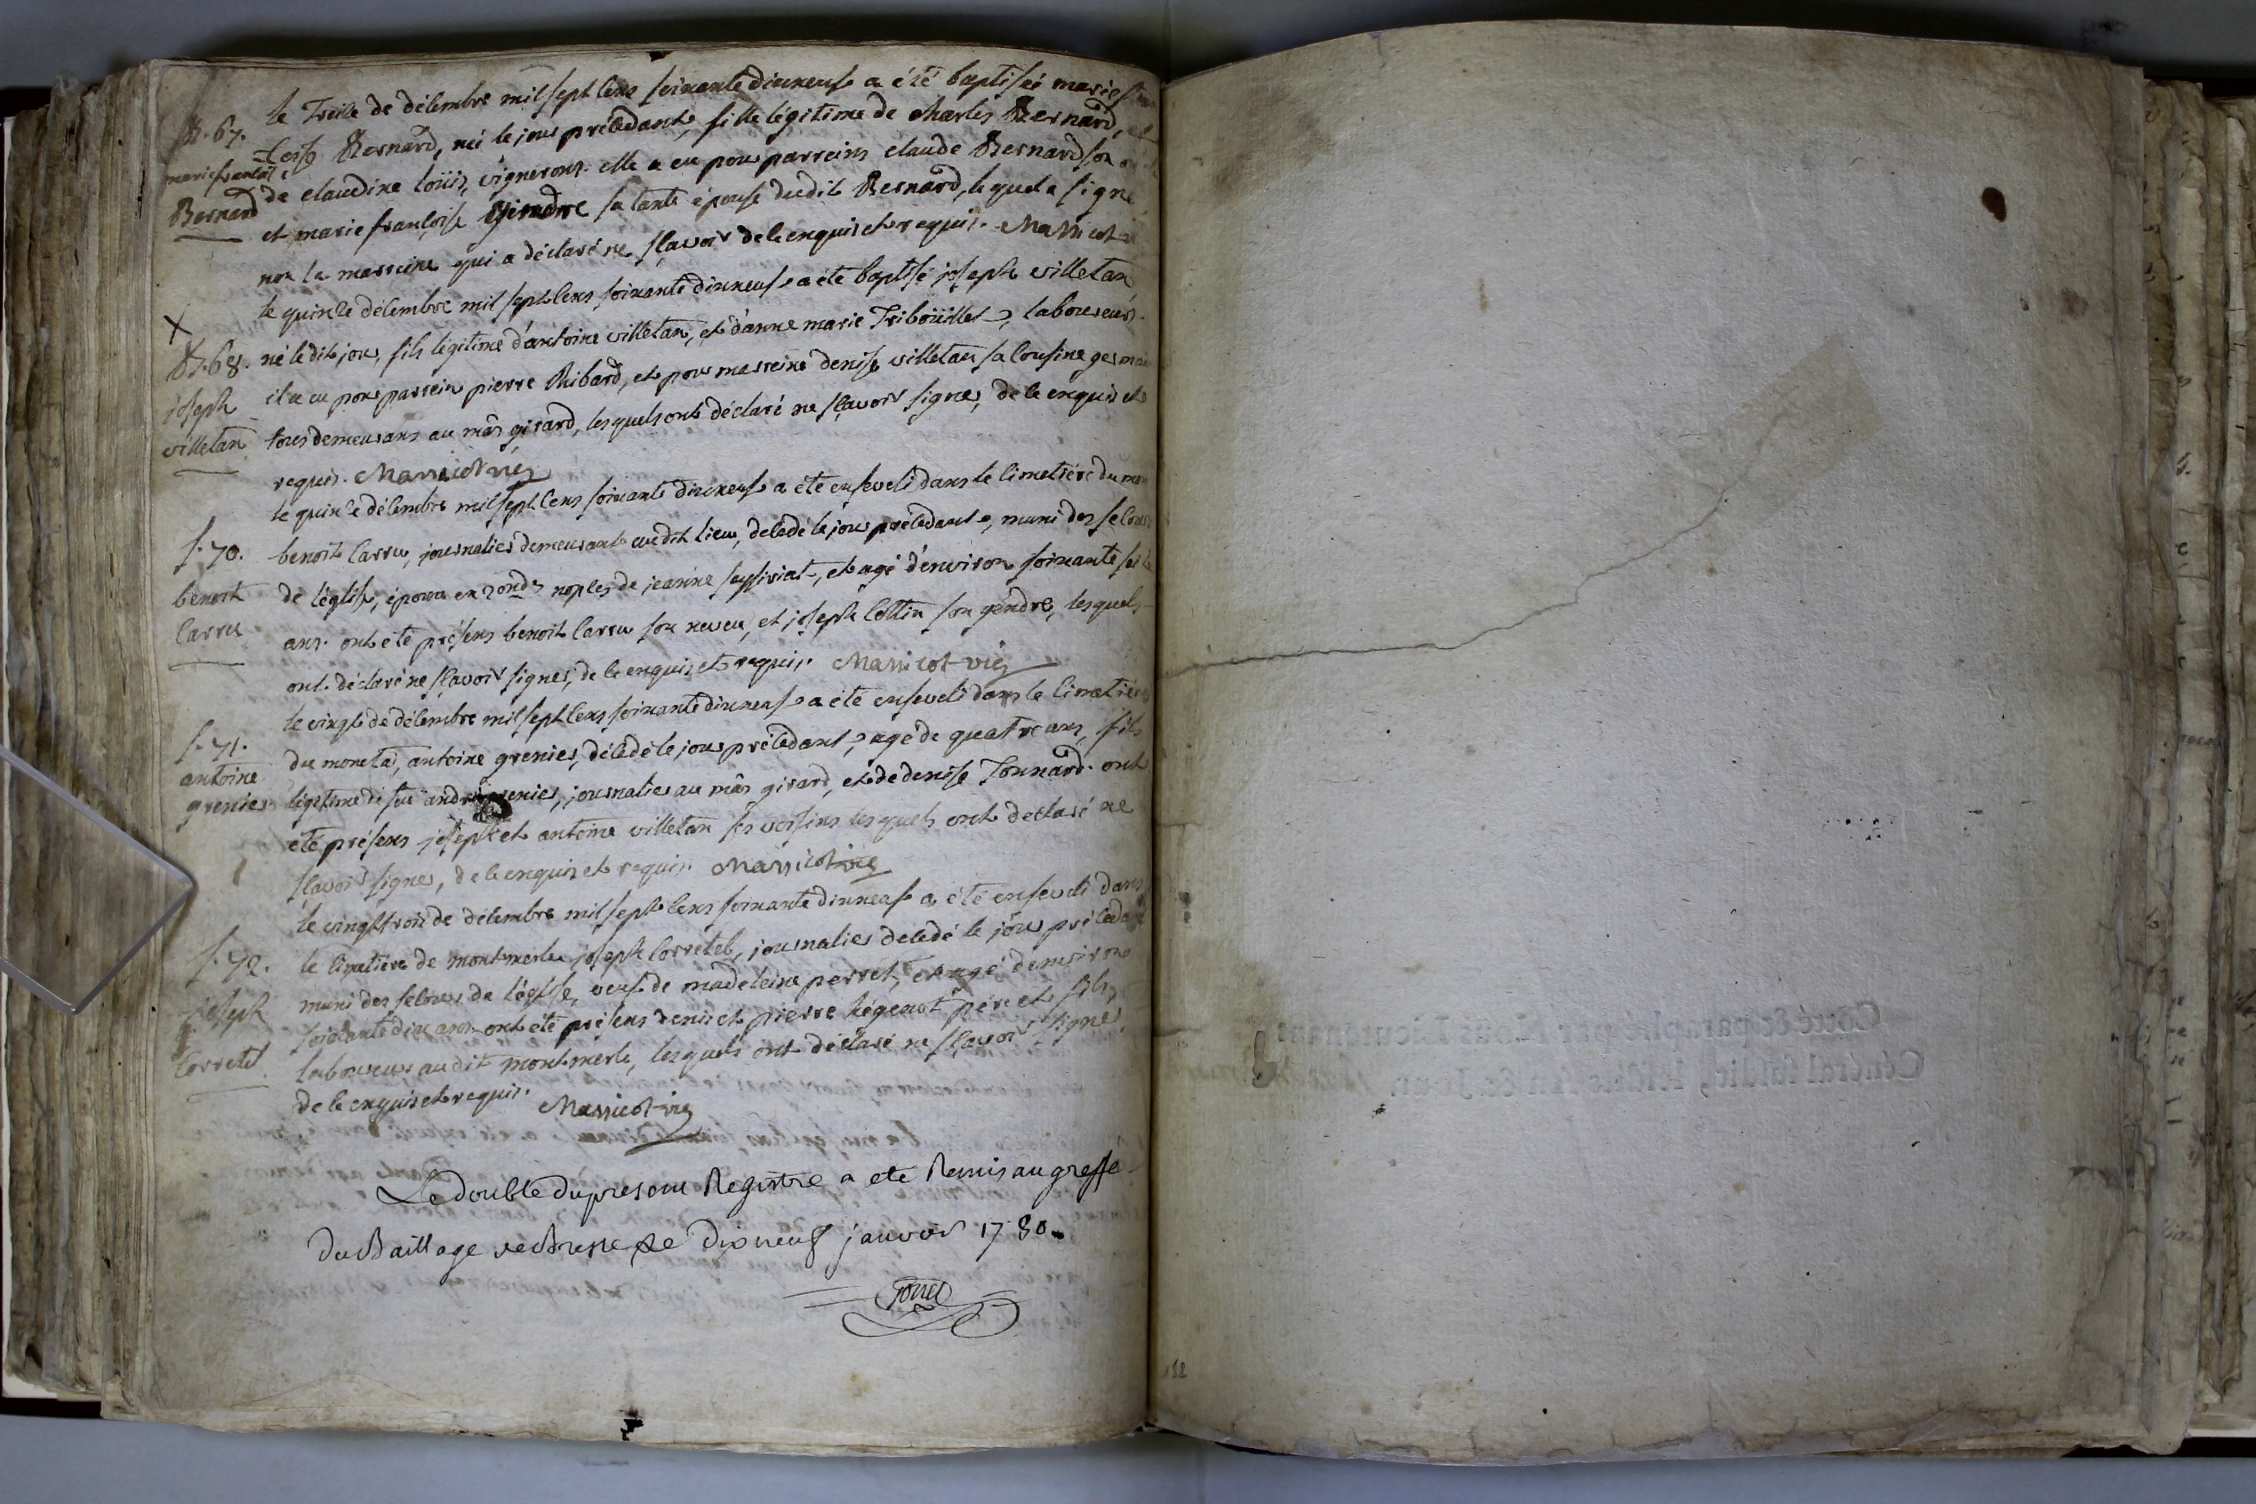 B. 67.
marie françoise
Bernard
le Treize de décembre mil sept cens soixante dixneuf a été baptisée marie fran
-coise Bernard, née le jour précédant, fille légitime de charles Bernard, et
de claudine loüis, vignerons. elle a eu pour parreins claude Bernard son oncle
et marie françoise Gindre sa tante épouse dudit Bernard, lequel a signé
non la marreine qui a déclaré ne sçavoir de ce enquis et requis. Massicot
X
B. 68.
joseph
villetan
le quinze décembre mil sept cens soixante dixneuf a été baptisé joseph villetan
né ledit jour, fils légitime d'antoine villetan, et d'anne marie Triboüillet, laboureurs.
il a eu pour parrein pierre Ribard, et pour marreine denise villetan sa cousine germaine
tous demeurans au mâs girard, lesquels ont déclaré ne sçavoir signer, de ce enquis et
requis. Massicot vic
s. 70.
benoit
carru
le quinze décembre mil sept cens soixante dixneuf a été enseveli dans le cimetière du
benoit carru, journalier demeurant audit lieu, décédé le jour précédant, muni des secours
de l'église, époux en 2ondes noples de jeanne seyssiriat, et agé d'environ soixante seize
ans. ont été présens benoit carru son neveu, et joseph collin son gendre, lesquels
ont déclaré ne sçavoir signer, de ce enquis et requis. Massicot vic
s. 71.
antoine
grenier
le vingt de décembre mil sept cens soixante dixneuf a été enseveli dans le cimetière
du monetai, antoine grenier, décédé le jour précédant, agé de quatre ans, fils
légitime de feu andré grenier, journalier au mâs girard, et de denise Tonnard. ont
été présens joseph et antoine villetan ses voisins lesquels ont déclaré ne
sçavoir signer, de ce enquis et requis. Massicot vic
s. 72.
joseph
Corretel
le vingt trois de décembre mil sept cens soixante dixneuf a été enseveli dans
le cimetière de montmerle joseph Corretel, journalier décédé le jour précédant
muni des secours de l'église, veuf de madeleine perret, et agé d'environ
soixante dix ans. ont été présens denis et pierre Régenot père et fils,
laboureurs audit montmerle, lesquels ont déclaré ne sçavoir signer
de ce enquis et requis.
Massicot vic
Le double du present Registre a eté Remis au greffe
du Baillage de Bresse Le dix neuf janvier 1780.
132